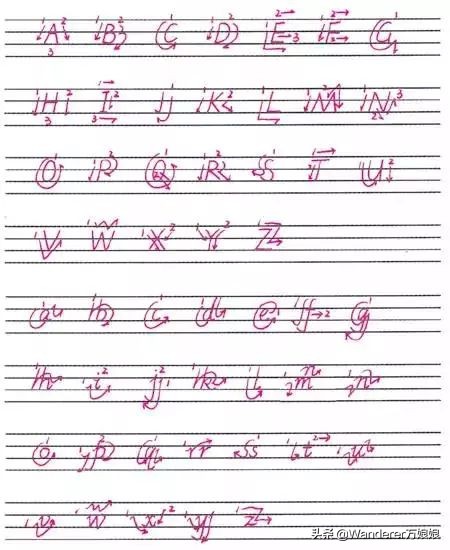 A B C D E F G
H I J K L M N
O P Q R S T U
V W X Y Z
a b c d e f g
h i j k l m n
o p q r s t u
v w x y z
头条 @Wanderer万娘娘